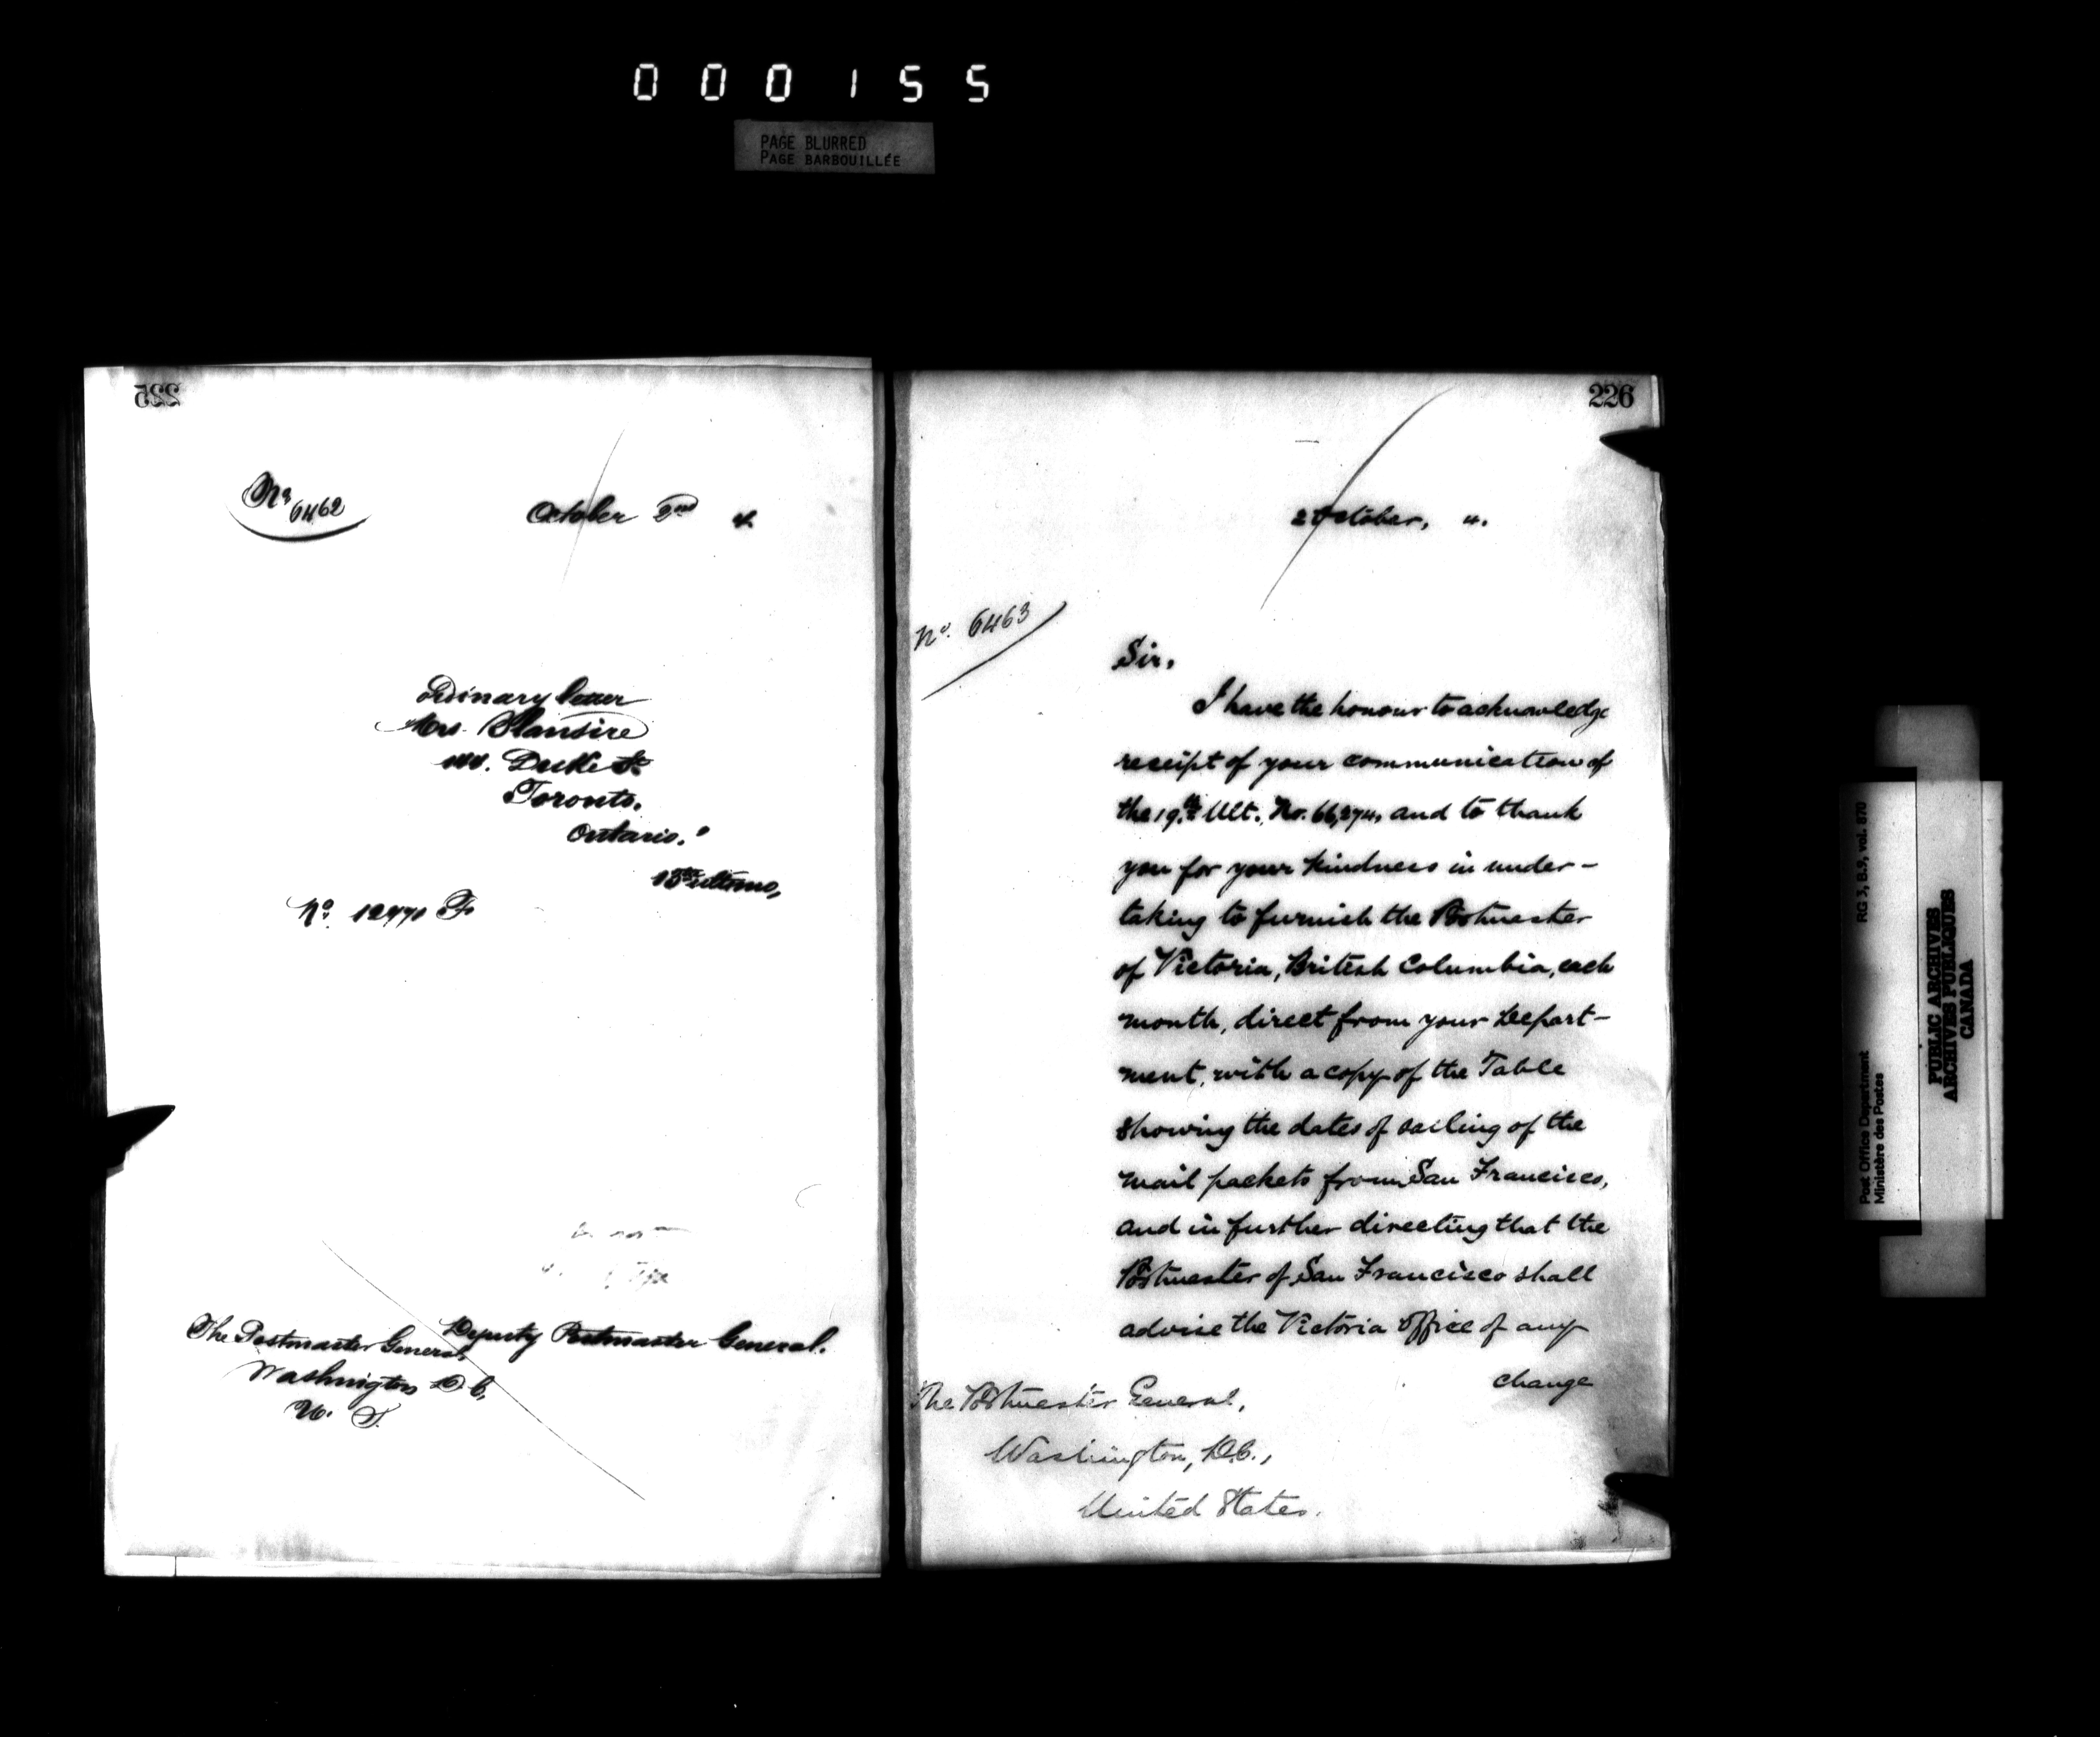 000155
PAGE BLURRED
PAGE BARBOUILLÉE
225
No 6462
October 2nd 4.
Ordinary letter
Mrs. Slansire
Duke St.
Toronto,
Ontario.
15th ultimo,
No. 12471 F
Deputy Postmaster General.
The Postmaster General,
Washington D.C.
U. S.
226
2 October, 4.
No. 6463
Sir,
I have the honour to acknowledge
receipt of your communication of
the 19th Ult., No. 66,274, and to thank
you for your kindness in under-
taking to furnish the Postmaster
of Victoria, British Columbia, each
month, direct from your Depart-
ment, with a copy of the Table
showing the dates of sailing of the
mail packets from San Francisco,
and in further directing that the
Postmaster of San Francisco shall
advise the Victoria office of any
change
The Postmaster General,
Washington, D.C.,
United States.
Post Office Department RG 3, B.9, vol. 870
Ministère des Postes
PUBLIC ARCHIVES
ARCHIVES PUBLIQUES
CANADA